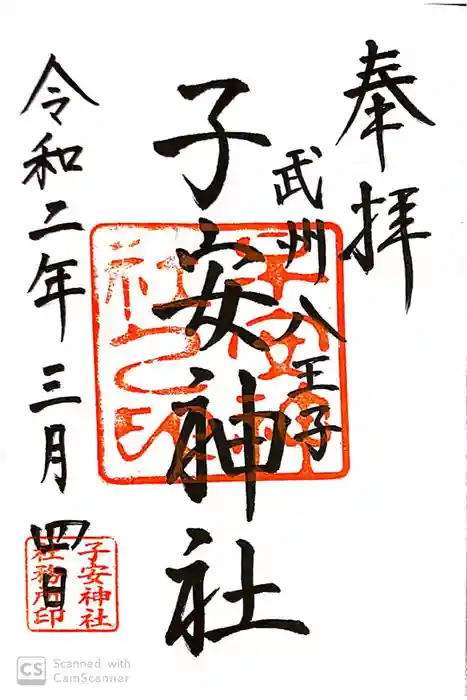 奉拝
武州八王子
子安神社
子安神
社之印
令和二年三月四日
子安神社
社務所印
CS Scanned with
CamScanner